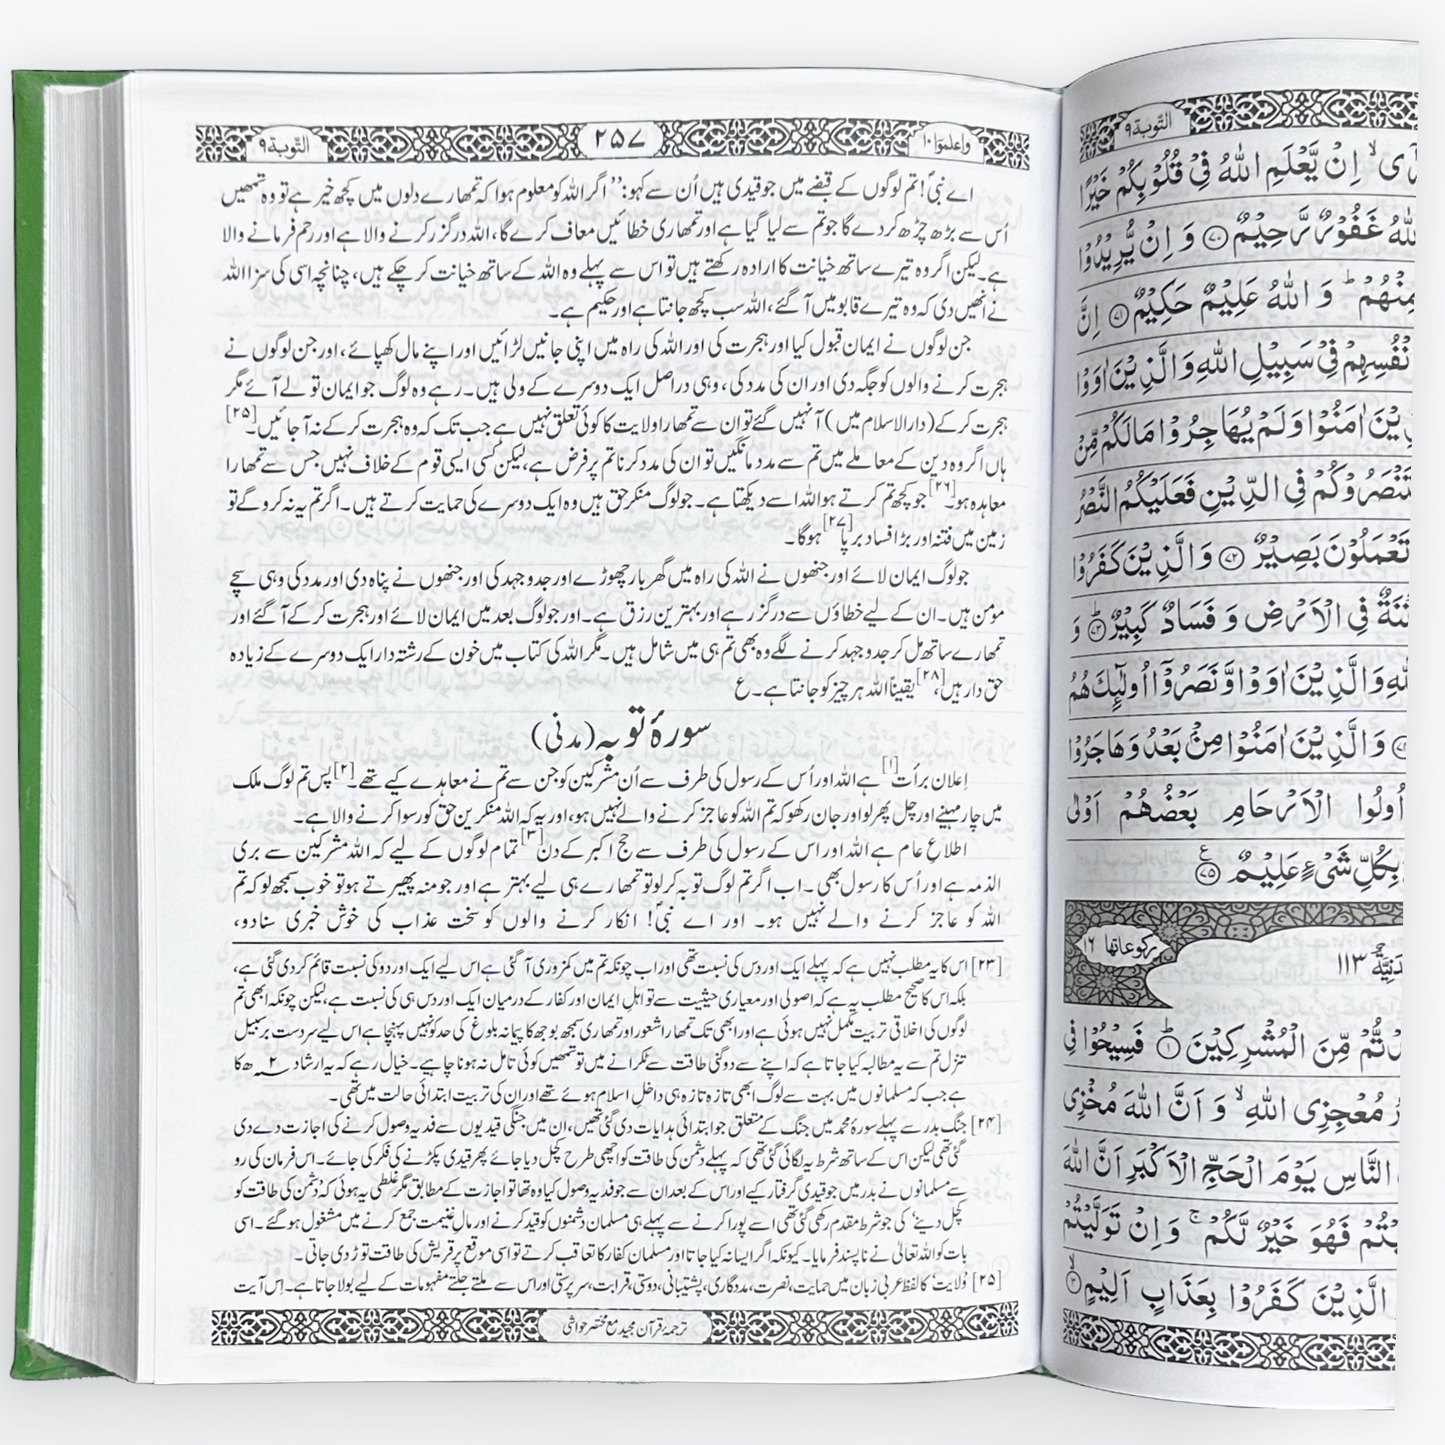 واعلموا ۱۰
۲۵۷
التّوبة ۹
اے نبیؐ! تم لوگوں کے قبضے میں جو قیدی ہیں اُن سے کہو: ’’اگر اللہ کو معلوم ہوا کہ تمھارے دلوں میں کچھ خیر ہے تو وہ تمھیں
اُس سے بڑھ چڑھ کر دے گا جو تم سے لیا گیا ہے اور تمھاری خطائیں معاف کرے گا، اللہ درگزر کرنے والا ہے اور رحم فرمانے والا
ہے۔ لیکن اگر وہ تیرے ساتھ خیانت کا ارادہ رکھتے ہیں تو اس سے پہلے وہ اللہ کے ساتھ خیانت کر چکے ہیں، چنانچہ اسی کی سزا اللہ
نے انھیں دی کہ وہ تیرے قابو میں آ گئے، اللہ سب کچھ جانتا ہے اور حکیم ہے۔
جن لوگوں نے ایمان قبول کیا اور ہجرت کی اور اللہ کی راہ میں اپنی جانیں لڑائیں اور اپنے مال کھپائے، اور جن لوگوں نے
ہجرت کرنے والوں کو جگہ دی اور ان کی مدد کی، وہی دراصل ایک دوسرے کے ولی ہیں۔ رہے وہ لوگ جو ایمان تو لے آئے مگر
ہجرت کر کے (دارالاسلام میں) آ نہیں گئے تو ان سے تمھارا ولایت کا کوئی تعلق نہیں ہے جب تک کہ وہ ہجرت کر کے نہ آ جائیں۔[۲۵]
ہاں اگر وہ دین کے معاملے میں تم سے مدد مانگیں تو ان کی مدد کرنا تم پر فرض ہے، لیکن کسی ایسی قوم کے خلاف نہیں جس سے تمھارا
معاہدہ ہو۔[۲۶] جو کچھ تم کرتے ہو اللہ اسے دیکھتا ہے۔ جو لوگ منکرِ حق ہیں وہ ایک دوسرے کی حمایت کرتے ہیں۔ اگر تم یہ نہ کرو گے تو
زمین میں فتنہ اور بڑا فساد برپا[۲۷] ہو گا۔
جو لوگ ایمان لائے اور جنھوں نے اللہ کی راہ میں گھر بار چھوڑے اور جدوجہد کی اور جنھوں نے پناہ دی اور مدد کی وہی سچے
مومن ہیں۔ ان کے لیے خطاؤں سے درگزر ہے اور بہترین رزق ہے۔ اور جو لوگ بعد میں ایمان لائے اور ہجرت کر کے آ گئے اور
تمھارے ساتھ مل کر جدوجہد کرنے لگے وہ بھی تم ہی میں شامل ہیں۔ مگر اللہ کی کتاب میں خون کے رشتہ دار ایک دوسرے کے زیادہ
حق دار ہیں،[۲۸] یقیناً اللہ ہر چیز کو جانتا ہے۔ ع
سورۂ توبہ (مدنی)
اِعلان برأت[۱] ہے اللہ اور اُس کے رسول کی طرف سے اُن مشرکین کو جن سے تم نے معاہدے کیے تھے۔[۲] پس تم لوگ ملک
میں چار مہینے اور چل پھر لو اور جان رکھو کہ تم اللہ کو عاجز کرنے والے نہیں ہو، اور یہ کہ اللہ منکرین حق کو رسوا کرنے والا ہے۔
اطلاعِ عام ہے اللہ اور اس کے رسول کی طرف سے حج اکبر کے دن[۳] تمام لوگوں کے لیے کہ اللہ مشرکین سے بری
الذمہ ہے اور اُس کا رسول بھی۔ اب اگر تم لوگ توبہ کر لو تو تمھارے ہی لیے بہتر ہے اور جو منہ پھیرتے ہو تو خوب سمجھ لو کہ تم
اللہ کو عاجز کرنے والے نہیں ہو۔ اور اے نبیؐ! انکار کرنے والوں کو سخت عذاب کی خوش خبری سنا دو،
[۲۳] اس کا یہ مطلب نہیں ہے کہ پہلے ایک اور دس کی نسبت تھی اور اب چونکہ تم میں کمزوری آ گئی ہے اس لیے ایک اور دو کی نسبت قائم کر دی گئی ہے،
بلکہ اس کا صحیح مطلب یہ ہے کہ اصولی اور معیاری حیثیت سے تو اہلِ ایمان اور کفار کے درمیان ایک اور دس ہی کی نسبت ہے، لیکن چونکہ ابھی تم
لوگوں کی اخلاقی تربیت مکمل نہیں ہوئی ہے اور ابھی تک تمھارا شعور اور تمھاری سمجھ بوجھ کا پیمانہ بلوغ کی حد کو نہیں پہنچا ہے اس لیے سردست برسبیل
تنزل تم سے یہ مطالبہ کیا جاتا ہے کہ اپنے سے دوگنی طاقت سے ٹکرانے میں تو تمھیں کوئی تامل نہ ہونا چاہیے۔ خیال رہے کہ یہ ارشاد ۲ ھ کا
ہے جب کہ مسلمانوں میں بہت سے لوگ ابھی تازہ تازہ ہی داخلِ اسلام ہوئے تھے اور ان کی تربیت ابتدائی حالت میں تھی۔
[۲۴] جنگ بدر سے پہلے سورۂ محمدؐ میں جنگ کے متعلق جو ابتدائی ہدایات دی گئی تھیں، ان میں جنگی قیدیوں سے فدیہ وصول کرنے کی اجازت دے دی
گئی تھی لیکن اس کے ساتھ شرط یہ لگائی گئی تھی کہ پہلے دشمن کی طاقت کو اچھی طرح کچل دیا جائے پھر قیدی پکڑنے کی فکر کی جائے۔ اس فرمان کی رو
سے مسلمانوں نے بدر میں جو قیدی گرفتار کیے اور اس کے بعد ان سے جو فدیہ وصول کیا وہ تھا تو اجازت کے مطابق مگر غلطی یہ ہوئی کہ ’دشمن کی طاقت کو
کچل دینے‘ کی جو شرط مقدم رکھی گئی تھی اسے پورا کرنے سے پہلے ہی مسلمان دشمنوں کو قید کرنے اور مالِ غنیمت جمع کرنے میں مشغول ہو گئے۔ اسی
بات کو اللہ تعالیٰ نے ناپسند فرمایا۔ کیونکہ اگر ایسا نہ کیا جاتا اور مسلمان کفار کا تعاقب کرتے تو اسی موقع پر قریش کی طاقت توڑ دی جاتی۔
[۲۵] ’ولایت‘ کا لفظ عربی زبان میں حمایت، نصرت، مددگاری، پشتیبانی، دوستی، قرابت، سرپرستی اور اس سے ملتے جلتے مفہومات کے لیے بولا جاتا ہے۔ اس آیت
ترجمۂ قرآن مجید مع مختصر حواشی
التّوبة ۹
اِنْ يَّعْلَمِ اللّٰهُ فِيْ قُلُوْبِكُمْ خَيْرًا
غَفُوْرٌ رَّحِيْمٌ ﴿۷۰﴾ وَ اِنْ يُّرِيْدُوْا
مِنْهُمْ ؕ وَ اللّٰهُ عَلِيْمٌ حَكِيْمٌ ﴿۷۱﴾ اِنَّ
فِيْ سَبِيْلِ اللّٰهِ وَ الَّذِيْنَ اٰوَوْا
اٰمَنُوْا وَ لَمْ يُهَاجِرُوْا مَا لَكُمْ مِّنْ
فِي الدِّيْنِ فَعَلَيْكُمُ النَّصْرُ
تَعْمَلُوْنَ بَصِيْرٌ ﴿۷۲﴾ وَ الَّذِيْنَ كَفَرُوْا
فِي الْاَرْضِ وَ فَسَادٌ كَبِيْرٌ ﴿۷۳﴾ؕ وَ
وَ الَّذِيْنَ اٰوَوْا وَّ نَصَرُوْۤا اُولٰٓئِكَ هُمُ
وَ الَّذِيْنَ اٰمَنُوْا مِنْۢ بَعْدُ وَ هَاجَرُوْا
اُولُوا الْاَرْحَامِ بَعْضُهُمْ اَوْلٰى
بِكُلِّ شَيْءٍ عَلِيْمٌ ﴿۷۵﴾
۱۱۳
ركوعاتها ۱۶
مِّنَ الْمُشْرِكِيْنَ ﴿۱﴾ؕ فَسِيْحُوْا فِي
مُعْجِزِي اللّٰهِ ۙ وَ اَنَّ اللّٰهَ مُخْزِي
النَّاسِ يَوْمَ الْحَجِّ الْاَكْبَرِ اَنَّ اللّٰهَ
فَهُوَ خَيْرٌ لَّكُمْ ۚ وَ اِنْ تَوَلَّيْتُمْ
الَّذِيْنَ كَفَرُوْا بِعَذَابٍ اَلِيْمٍ